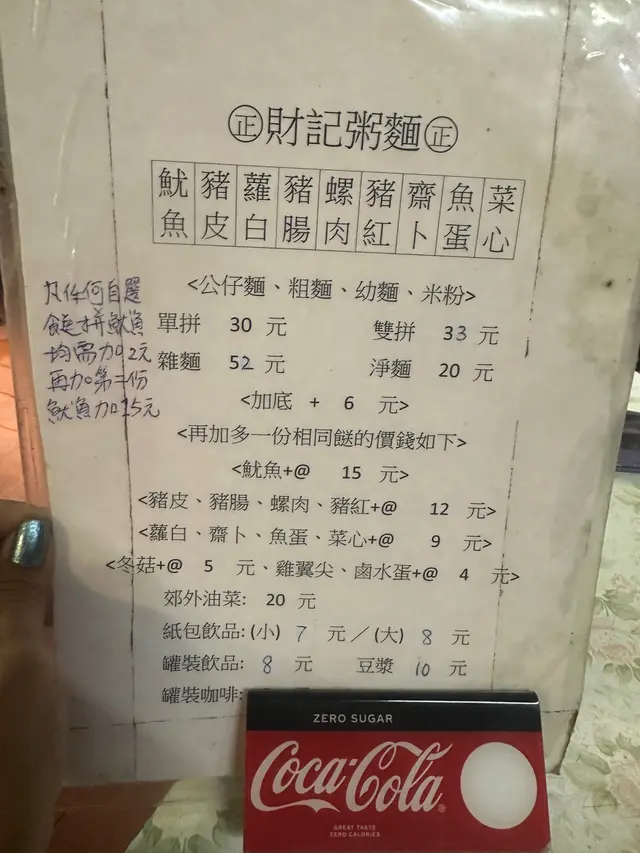 正財記粥麵正
魷魚 豬皮 蘿白 豬腸 螺肉 豬紅 齋卜 魚蛋 菜心
<公仔麵、粗麵、幼麵、米粉>
單拼 30 元 雙拼 33 元
雜麵 52 元 淨麵 20 元
<加底 + 6 元>
<再加多一份相同餸的價錢如下>
<魷魚+@ 15 元>
<豬皮、豬腸、螺肉、豬紅+@ 12 元>
<蘿白、齋卜、魚蛋、菜心+@ 9 元>
<冬菇+@ 5 元、雞翼尖、鹵水蛋+@ 4 元>
郊外油菜: 20 元
紙包飲品: (小) 7 元／(大) 8 元
罐裝飲品: 8 元 豆漿 10 元
罐裝咖啡:
凡任何自選
餸拼魷魚
均需加2元
再加第二份
魷魚加15元
ZERO SUGAR
Coca-Cola
GREAT TASTE
ZERO CALORIES